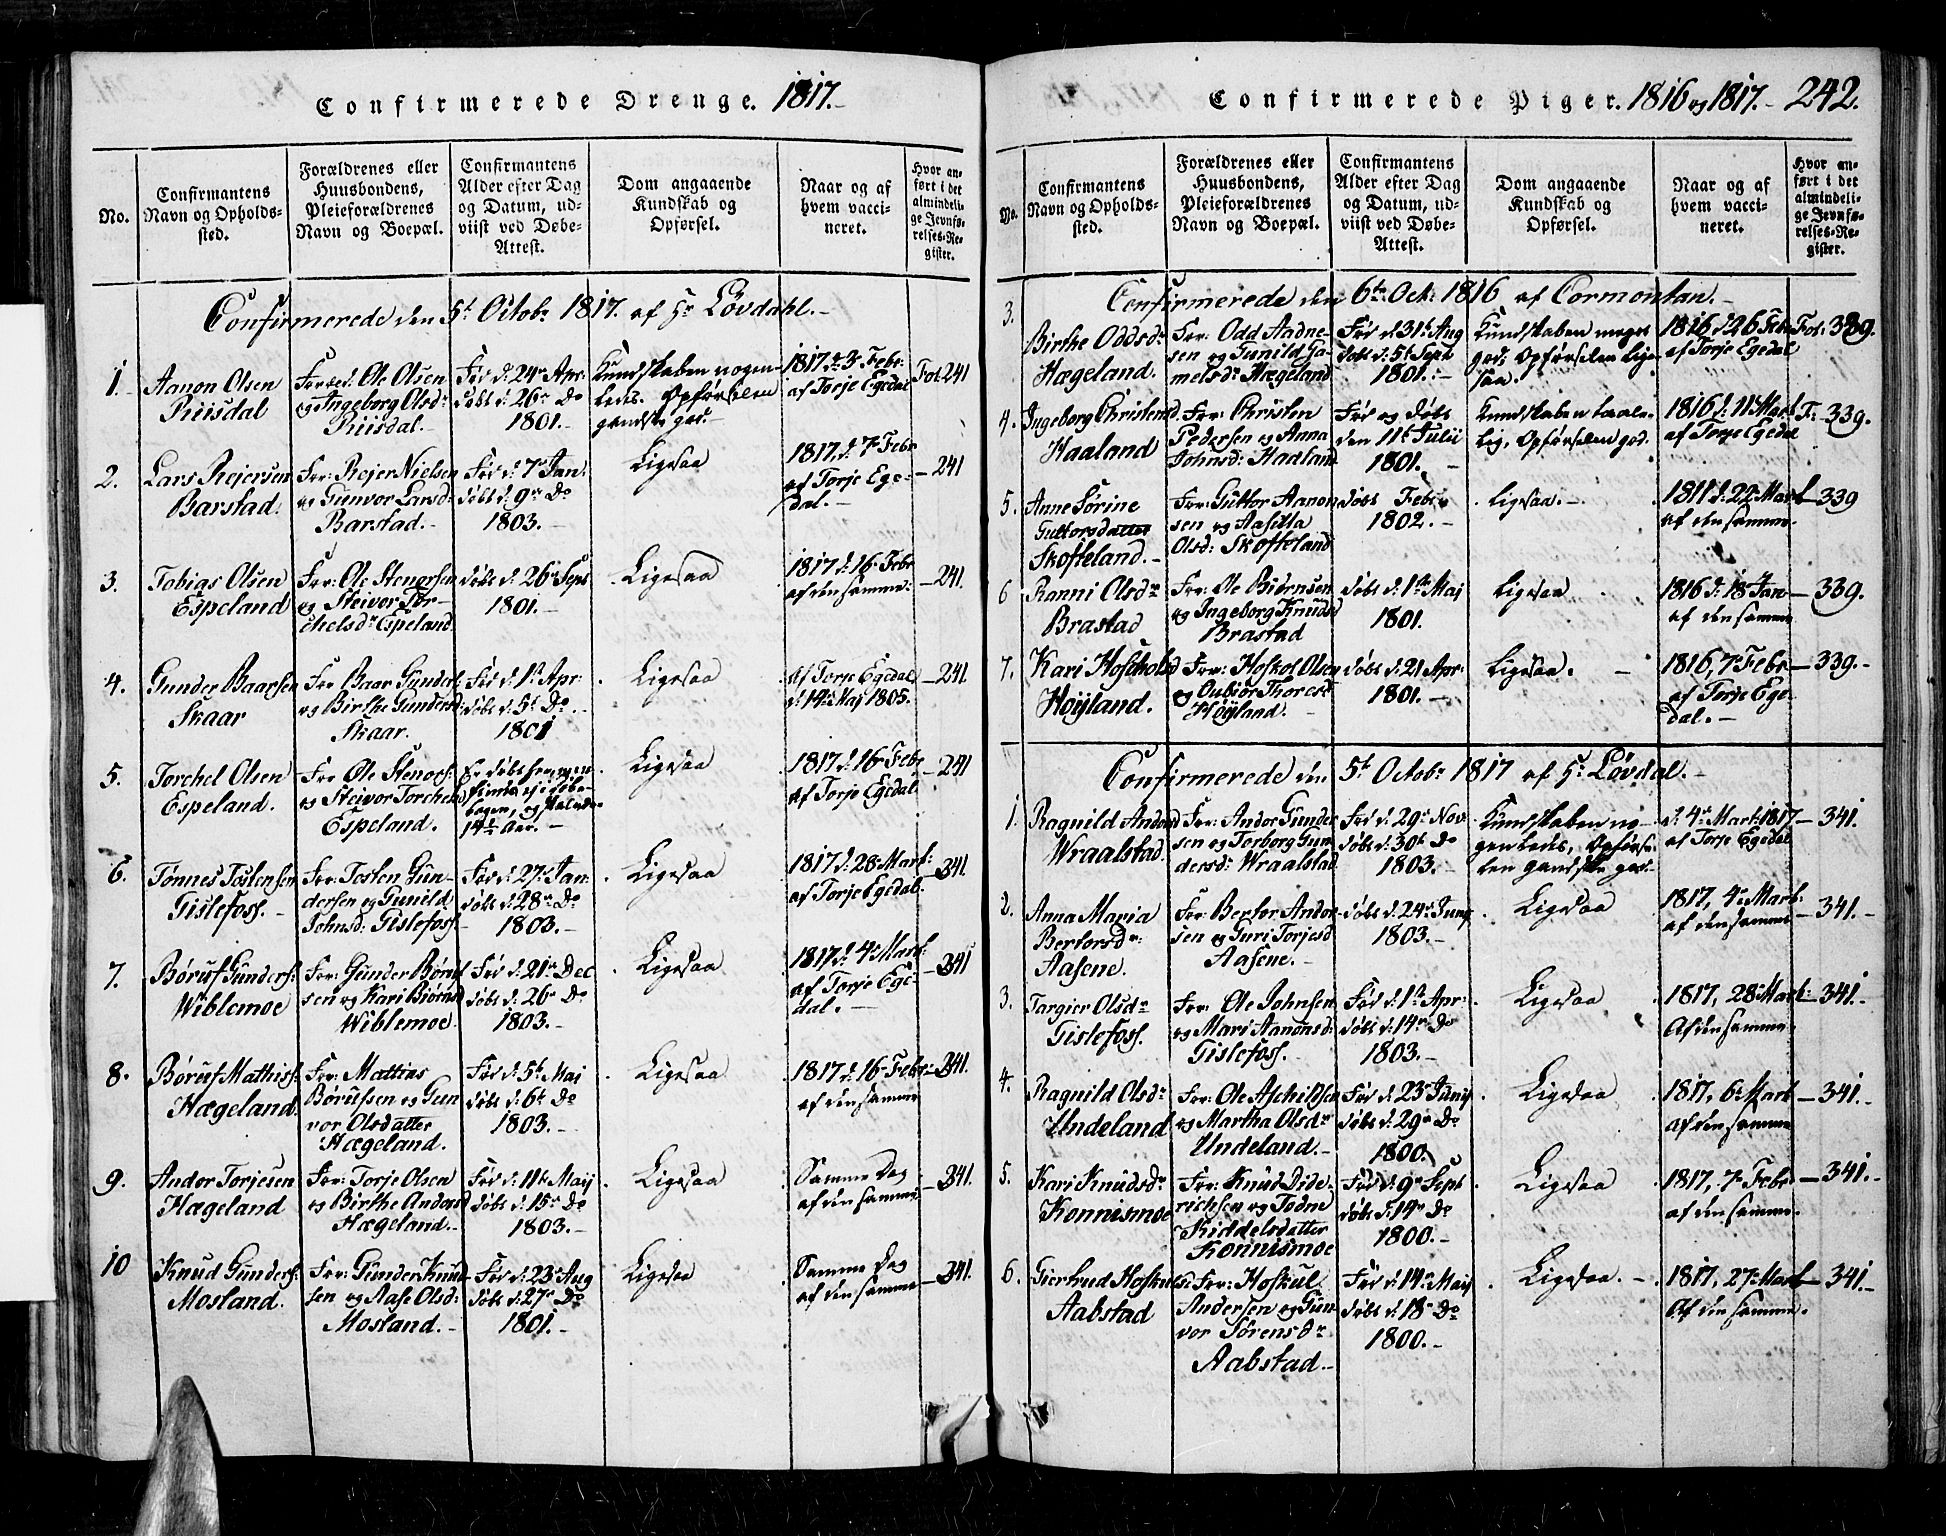 Confirmerede Drenge. 1817.-
No.
Confirmantens Navn og Opholds-sted.
Forældrenes eller Huusbondens, Pleieforældrenes Navn og Boepæl.
Confirmantens Alder efter Dag og Datum, ud-viist ved Døbe-Attest.
Dom angaaende Kundskab og Opførsel.
Naar og af hvem vacci-neret.
Hvor an-ført i det almindeli-ge Jevnfø-relses-Re-gister.
Confirmerede den 5t Octobr 1817. af Hr Løvdahl.-
1.
Aanon Olsen
Riisdal
Ole Olsen
og Ingeborg Olsdr
Riisdal.-
Fød d. 24r Apr.
døbt d. 26r Do
1801.-
Kundskaben nogen-
ledes. Opførselen
gandske god.-
1817 d. 3 Febr
af Torje Egedal
Fol 241
2.
Lars Rejersen
Barstad.
For: Rejer Nielsen
og Gunvor Larsd:
Barstad.-
Fød d. 7r Jan.
døbt d. 9r Do
1803.-
Ligesaa
1817 d. 7r Febr
af Torje Ege-
dal.-
241
3.
Tobias Olsen
Espeland
For: Ole Stenersen
og Steivor Tor-
chelsdr Espeland
døbt d. 26r Sept
1801.-
Ligesaa
1817 d. 16 Febr
af den samme.
241.
4.
Gunder Baarsen
Skaar
For Baar Gunders
og Birthe Gundersd:
Skaar.
Fød d. 1t Apr:
døbt d. 5t Do.
1801
Ligesaa
Af Torje Egedal
d. 14r Maj 1805.
241
5.
Torchel Olsen
Espeland.
For Ole Steners:
og Steivor Torchelsd
Espeland.
14½ Aar.-
Ligesaa
1817 d. 16 Febr
af Torje Egedal
241
6.
Tønnes Tostensen
Gislefoss.
For: Tosten Gun-
dersen og Gunild
Johnsd: Gislefoss.
Fød d. 27r Jan
døbt d. 28r Do
1803.-
Ligesaa
1817 d. 28r Mart:
af Torje Egedal.
341.
7.
Børuf Gunders:
Wiblemoe
For: Gunder Børuf
sen og Kari Biørnsd
Wiblemoe.
Fød d. 21r Dec
døbt d. 26r Do
1803.-
Ligesaa
1817 d. 4r Mart:
af Torje Ege-
dal.-
341
8.
Børuf Mathiss:
Hægeland.
For: Mattias
Børufsen og Gun
vor Olsdatter
Hægeland.
Fød d. 5t Maj
døbt d. 6t Do
1803.-
Ligesaa
1817 d. 16 Febr
af den samme
341.
9.
Ander Torjesen
Hægeland
For: Torje Olsen
og Birthe Andersd
Hægeland.-
Fød d. 11t Maij
døbt d. 15r Do
1803.-
Ligesaa
Samme Dag
af den samme
341.
10
Knud Gunders:
Mosland.
For: Gunder Knud
sen og Aase Olsd:
Mosland.-
Fød d. 23r Aug
døbt d. 27r Do
1801.-
Ligesaa
Samme Dag
af den samme
341.
Confirmerede Piger. 1816 og 1817.- 242.
No.
Confirmantens Navn og Opholds-sted.
Forældrenes eller Huusbondens, Pleieforældrenes Navn og Boepæl.
Confirmantens Alder efter Dag og Datum, ud-viist ved Døbe-Attest.
Dom angaaende Kundskab og Opførsel.
Naar og af hvem vacci-neret.
Hvor an-ført i det almindeli-ge Jevnfø-relses-Re-gister.
Confirmerede den 6te Oct: 1816 af Cormontan.-
3.
Birthe Oddsdr
Hægeland.
For: Odd Aadne-
sen og Gunild Ga-
melsdr Hægeland
Fød d: 31t Aug
døbt d: 5t Sept
1801.-
Kundskaben meget
god; Opførselen lige-
saa.
1816 d 26 Feb
af Torje Egedal
Fol: 339.
4.
Ingeborg Christensd.
Haaland
For: Christen
Pedersen og Anna
Johnsd: Haaland
Fød og døbt
den 11t Julii
1801.-
Kundskaben taale-
lig, Opførselen god.
1816 d: 11t Mart
af Torje Egedal
F: 339.
5.
Anne Sørine
Guttorsdatter
Skofteland.-
For: Guttor Aanon
sen og Aasilla
Olsd: Skofteland
døbt Febr
1802.-
Ligesaa.-
1811 d: 22 Mart
af den samme.
339
6
Ranni Olsdr
Brastad
For: Ole Biørnsen
og Ingeborg Knudsd
Brastad
døbt d. 1te Maj
1801.
Ligesaa
1816 d: 18 Jan
af den samme
339.
7.
Kari Hoskolsd
Høyland.
For: Hoskol Olsen
og Oubiør Thoresd
Høyland.-
døbt d: 21 Apr:
1801.-
Ligesaa.
1816, 7r Febr
af Torje Ege-
dal.-
339.-
Confirmerede den 5t Octobr 1817 af Hr Løvdal.-
1.
Ragnild Andersd
Wraalstad.
For: Ander Gunder
sen og Torborg Gun
dersd: Wraalstad
Fød d: 29r Nov
døbt d: 30t Do
1803.-
Kundskaben no-
genledes, Opførse-
len gandske god.-
d. 4r Mart: 1817
af Torje Egedal
341.
2.
Anna Maria
Bertorsdr:
Aasene.
For: Bertor Ander
sen og Guri Torjesd
Aasene.-
døbt d: 24r Junij
1803.-
Ligesaa
1817, 4r Mart
af den samme
341.-
3.
Targier Olsdr
Gislefoss.
For: Ole Johnsen
og Mari Aanonsd:
Gislefoss.-
Fød d: 1te Apr:
døbt d: 14r Do
1803.-
Ligesaa
1817, 28 Mart:
Af den samme.
341.-
4.
Ragnild Olsdr
Undeland
For: Ole Aschildsen
og Martha Olsdr
Undeland.-
Fød d: 23r Junij
døbt d: 29r Do
1800.
Ligesaa
1817, 6r Mart
af den samme
341.-
5.
Kari Knudsdr
Konnismoe
For: Knud Dide
richsen og Todne
Kiddelsdatter
Konnismoe
Fød d: 9r Sept
døbt d: 14r Do
1800.-
Ligesaa
1817, 7r Febr
af den samme.
341.-
6.
Giertrud Hoskuls
Aabstad
For: Hoskul
Andersen og Gun-
vor Sørensdr
Aabstad.-
Fød d: 14r Maij
døbt d: 18r Do
1800.-
Ligesaa.-
1817, 27r Mart
Af den samme.
341.-